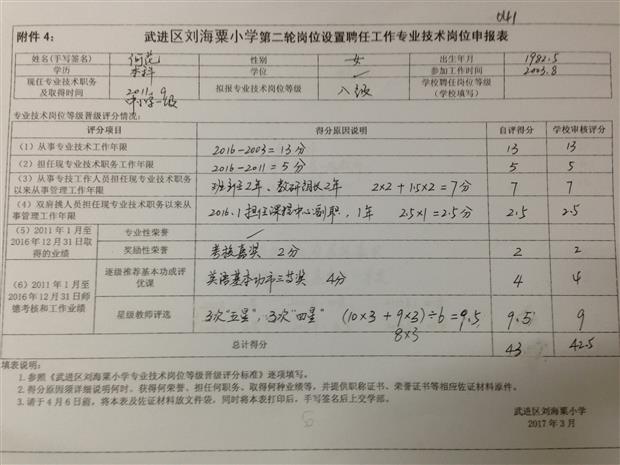 041
附件 4：
武进区刘海粟小学第二轮岗位设置聘任工作专业技术岗位申报表
姓名(手写签名) 何花 性别 女 出生年月 1982.5
学历 本科 学位 参加工作时间 2003.8
现任专业技术职务及取得时间 2011.9 中小学一级 拟报专业技术岗位等级 八级 学校聘任岗位等级（学校填写）
专业技术岗位等级晋级评分情况：
评分项目 得分原因说明 自评得分 学校审核评分
（1）从事专业技术工作年限 2016-2003=13分 13 13
（2）担任现专业技术职务年限 2016-2011=5分 5 5
（3）从事专技工作人员担任现专业技术职务以来从事管理工作年限 班主任2年、教研组长2年 2×2+1.5×2=7分 7 7
（4）双肩挑人员担任现专业技术职务以来从事管理工作年限 2016.1担任课程中心副职，1年 2.5×1=2.5分 2.5 2.5
（5）2011年1月至2016年12月31日取得的业绩 专业性荣誉
奖励性荣誉 考核嘉奖 2分 2 2
（6）2011年1月至2016年12月31日师德考核和工作业绩 逐级推荐基本功或评优课 英语基本功市三等奖 4分 4 4
星级教师评选 3次“五星”，3次“四星” (10×3+9×3)÷6=9.5 9.5 9
8×3
总计得分 43 42.5
填表说明：
1.参照《武进区刘海粟小学专业技术岗位等级晋升评分标准》逐项填写。
2.得分原因须详细说明何时、获得何荣誉、担任何职务、取得何种业绩等，并提供职称证书、荣誉证书等相应佐证材料原件。
3.请于4月6日前，将本表及佐证材料放文件袋，同时将本表打印后，手写签名后上交学部。
武进区刘海粟小学
2017年3月